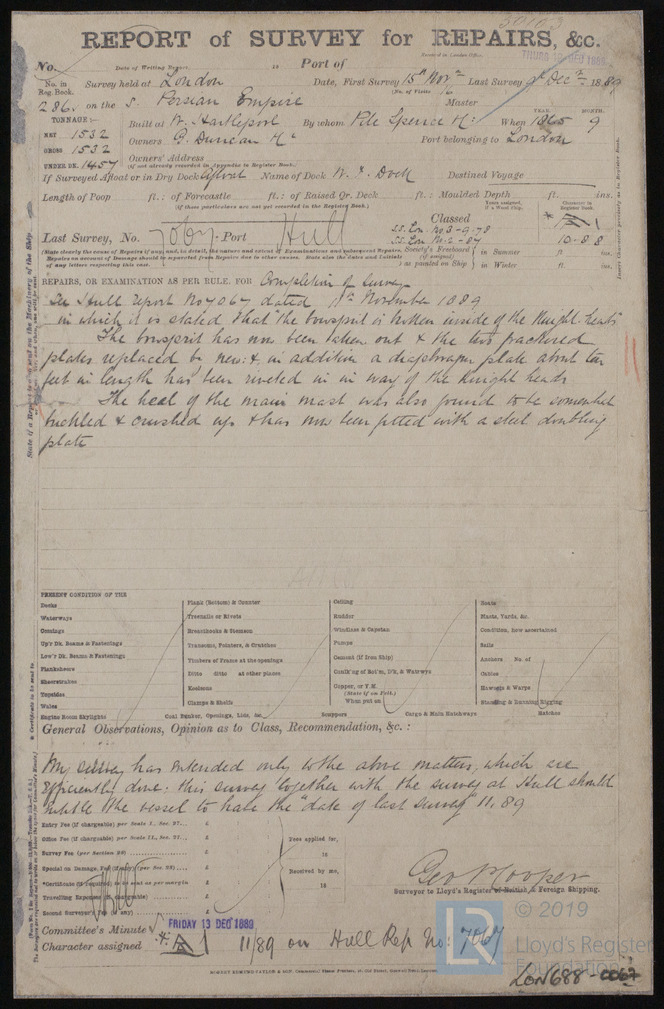 REPORT of SURVEY for REPAIRS, &c.
THURS 12 DEC 1889
No. Date of Writing Report, 18 Port of
No. in Reg. Book. Survey held at London Date, First Survey 15th Novr Last Survey 9th Decr 1889
(No. of Visits)
286. on the s. Persian Empire Master
TONNAGE:— Built at W. Hartlepool By whom Pile Spence & Co When 1865 9
YEAR. MONTH.
NET 1532 Owners G. Duncan & Co Port belonging to London
GROSS 1532
UNDER DK. 1457 Owners' Address
(if not already recorded in Appendix to Register Book.)
If Surveyed Afloat or in Dry Dock Afloat Name of Dock W. I. Dock Destined Voyage
Length of Poop ft.: of Forecastle ft.: of Raised Qr. Deck ft.: Moulded Depth ft. ins.
(If these particulars are not yet recorded in the Register Book.)
Classed
Last Survey, No. 7067 Port Hull
S.S. Lon. No 3-9-78
S.S. Lon. No 2-87
10.88
Society's Freeboard (if assigned) as painted on Ship in Summer ft. ins.
in Winter ft. ins.
REPAIRS, OR EXAMINATION AS PER RULE, FOR Completion of Survey
Hull report No 7067 dated November 1889
in which it is stated that "the bowsprit is broken inside of the Knight heads"
The bowsprit has now been taken out & the two fractured
plates replaced by new: & in addition a diaphragm plate about ten
feet in length has been riveted in in way of the Knight heads
The heel of the main mast was also found to be somewhat
buckled & crushed up & has now been fitted with a steel doubling
plate
PRESENT CONDITION OF THE
Decks
Waterways
Comings
Up'r Dk. Beams & Fastenings
Low'r Dk. Beams & Fastenings
Planksheers
Sheerstrakes
Topsides
Wales
Engine Room Skylights
Plank (Bottom) & Counter
Treenails or Rivets
Breasthooks & Stemson
Transoms, Pointers, & Crutches
Timbers of Frame at the openings
Ditto ditto at other places
Keelsons
Clamps & Shelfs
Coal Bunker, Openings, Lids, &c.
Ceiling
Rudder
Windlass & Capstan
Pumps
Cement (If Iron Ship)
Caulk'g of Bot'm, D'k, & Watrwys
Copper, or Y.M.
(State if on Felt.)
When put on
Scuppers
Cargo & Main Hatchways
Boats
Masts, Yards, &c.
Condition, how ascertained
Sails
Anchors No. of
Cables
Hawsers & Warps
Standing & Running Rigging
Hatches
General Observations, Opinion as to Class, Recommendation, &c.:
My survey has extended only to the above matters, which are
efficiently done: this survey together with the survey at Hull should
entitle the vessel to have the "date of last survey" 11.89
Entry Fee (if chargeable) per Scale I., Sec. 27... £
Office Fee (if chargeable) per Scale II., Sec. 27... £
Survey Fee (per Section 28) £
Special on Damage, Fee (if any) (per Sec. 28) £
*Certificate (if required) to be sent as per margin
Travelling Expenses (if chargeable) £
Second Surveyor's Fee (if any) £
Fees applied for,
18
Received by me,
18
Geo. B. Cooper
Surveyor to Lloyd's Register of British & Foreign Shipping.
Committee's Minute FRIDAY 13 DEC 1889
Character assigned A 1 11/89 on Hull Rep. No: 7067
LR © 2019
Lloyd's Register
Foundation
LON688-0067